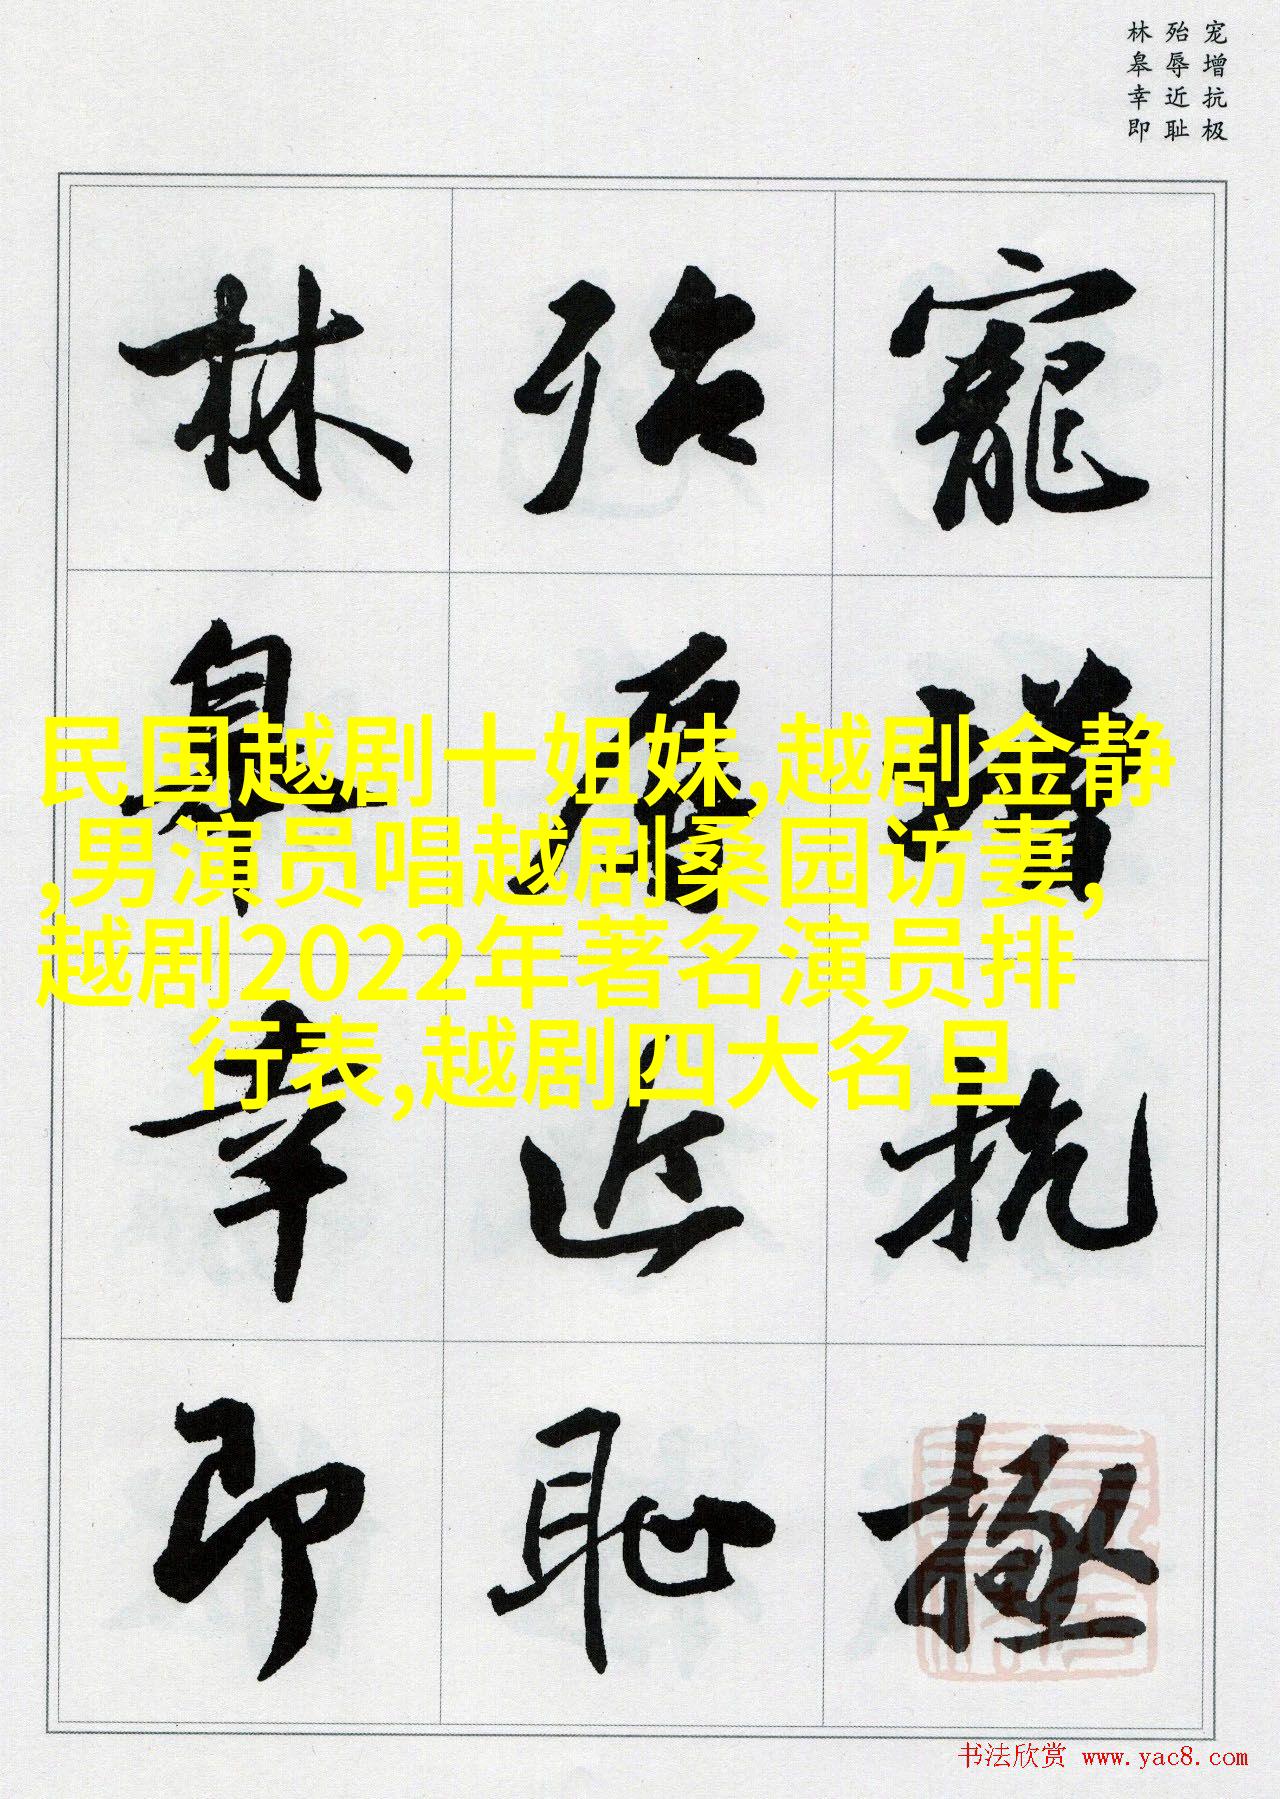 宠增抗极
殆辱近耻
林皋幸即
寵增抗極
殆辱近恥
林皋幸即
民国越剧十姐妹,越剧金静
,男演员唱越剧桑园访妻,
越剧2022年著名演员排
行表,越剧四大名旦
书法欣赏 www.yac8.com